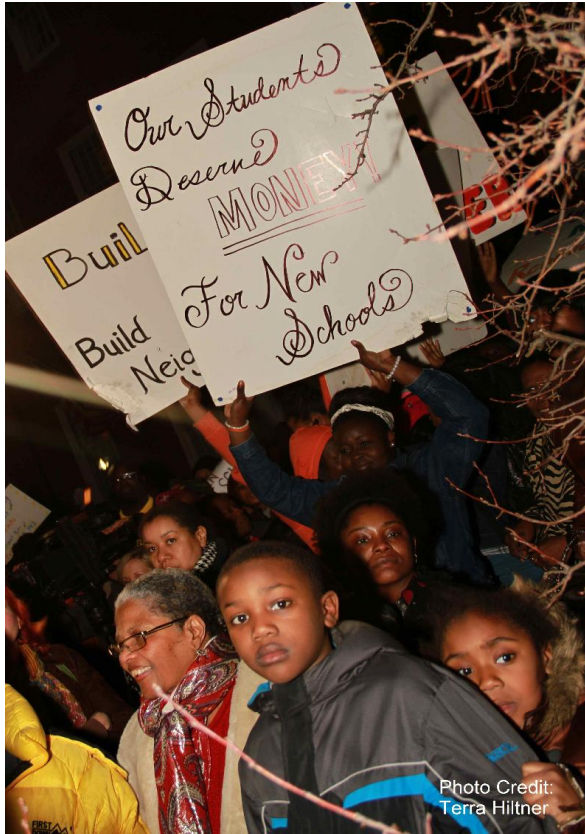 Our Students
Deserve
MONEY!
For New
Schools
Buil
Build
Neig
FIRST
Photo Credit:
Terra Hiltner